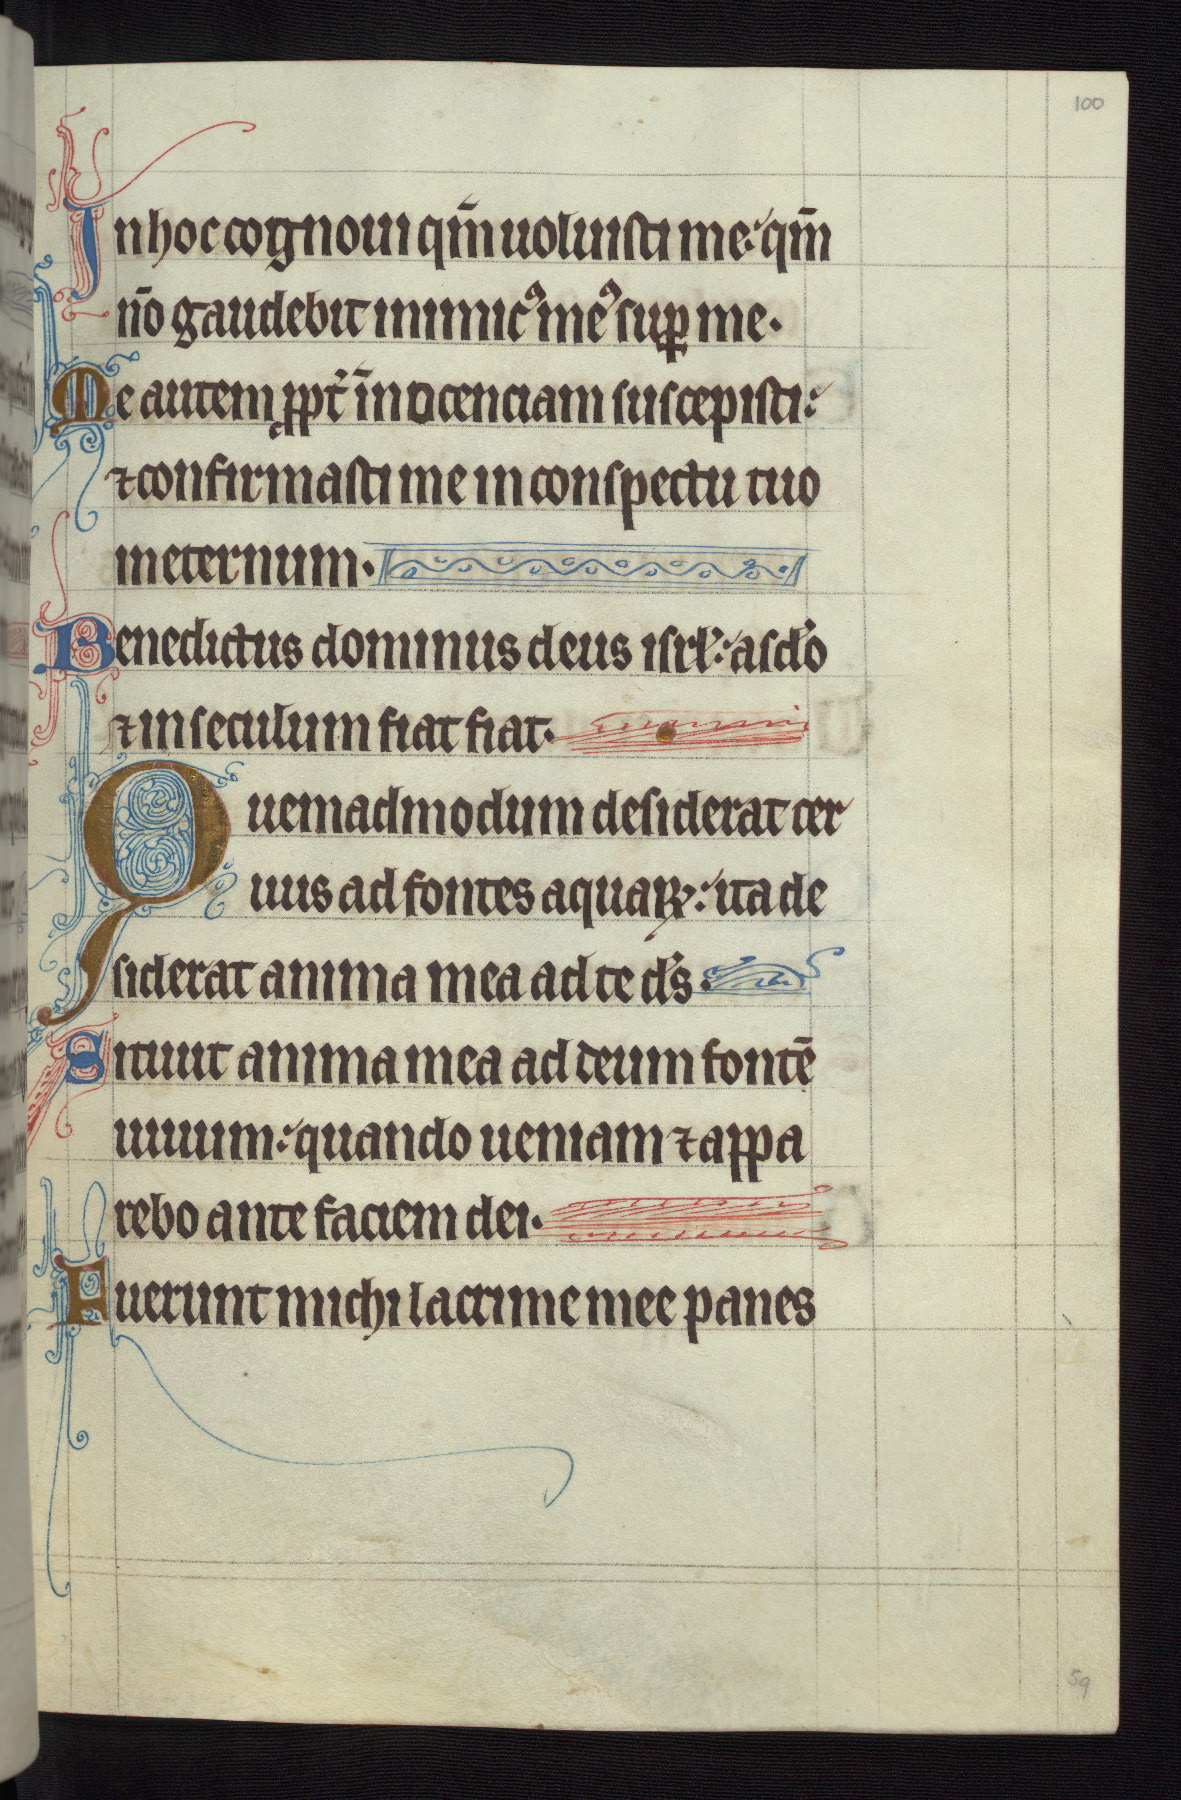 100
In hoc cognoui qm̄ uoluisti me: qm̄
nō gaudebit inimicꝰ meꝰ suꝑ me.
Me autem ꝓpt̄ īnocenciam suscepisti:
⁊ confirmasti me in conspectu tuo
ineternum.
Benedictus dominus deus isrl̓: a scl̓o
⁊ in seculum fiat fiat.
Quemadmodum desiderat cer
uus ad fontes aquaꝝ: ita de
siderat anima mea ad te d̓s.
Sitiuit anima mea ad deum fontē
uiuum: quando ueniam ⁊ appa
rebo ante faciem dei.
Fuerunt michi lacrime mee panes
59